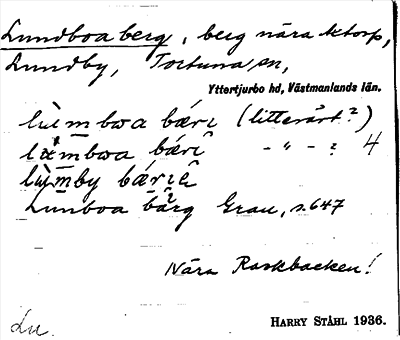 Lundboa berg, berg nära ktorp,
Lundby, Tortuna sn,
Yttertjurbo hd, Västmanlands län.
lùmbωa bǽri (litterärt?)
bǽri - " - ? 4
lùmby bǽri
Lunboa bärg Grau, s. 647
Nära Raskbacken!
Lu.
HARRY STÅHL 1936.